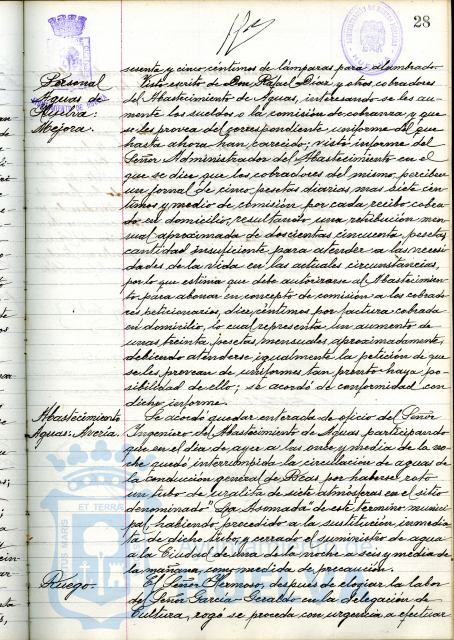 28
sesenta y cinco céntimos de lámparas para alumbrado.
Personal
Aguas de
Huelva:
Mejora.
Visto escrito de Don Rafael Diaz y otros cobradores
del Abastecimiento de Aguas, interesando se les au-
mente los sueldos o la comisión de cobranza y que
se les provea del correspondiente uniforme del que
hasta ahora han carecido; visto informe del
Señor Administrador del Abastecimiento en el
que se dice que los cobradores del mismo, perciben
un jornal de cinco pesetas diarias, mas siete cén-
timos y medio de comisión por cada recibo cobra-
do en domicilio, resultando una retribución men-
sual aproximada de doscientas cincuenta pesetas,
cantidad insuficiente para atender a las necesi-
dades de la vida en las actuales circunstancias,
por lo que estima que debe autorizarse al Abastecimien-
to para abonar en concepto de comisión a los cobrado-
res peticionarios, diez céntimos por factura cobrada
en domicilio, lo cual representa un aumento de
unas treinta pesetas mensuales aproximadamente,
debiendo atenderse igualmente la petición de que
se les provean de uniformes tan pronto haya po-
sibilidad de ello; se acordó de conformidad con
dicho informe.
Abastecimiento
Aguas: Averia.
Se acordó quedar enterada de oficio del Señor
Ingeniero del Abastecimiento de Aguas participando
que en el dia de ayer a las once y media de la no-
che quedó interrumpida la circulación de aguas de
la conducción general de Beas por haberse roto
un tubo de uralita de siete atmósferas en el sitio
denominado "La Asomada" de este término munici-
pal, habiendo procedido a la sustitución inmedia-
ta de dicho tubo, y cerrado el suministro de agua
a la Ciudad antes de la noche a seis y media de
la mañana, como medida de precaución.
Ruego.
El Señor Hermoso, despues de elogiar la labor
del Señor García Geraldo en la delegación de
Cultura, rogó se proceda con urgencia a efectuar